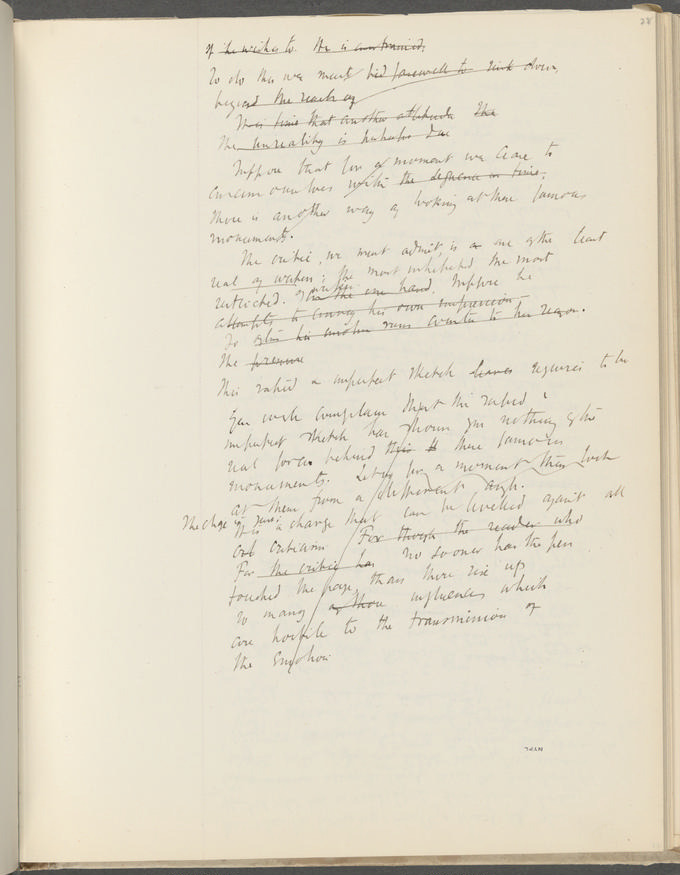 28
if he wishes to. He is constrained.
To do this we must bid farewell to sink down,
beyond the reach of
This time that another attitude The
The unreality is perhaps due
Suppose that for a moment we cease to
ourselves with the or time,
There is another way of looking at these famous
monuments.
The critic, we must admit, is a one of the least
real of writers; the most inhibited the most
restricted. of writers On the one hand. Suppose he
attempts to convey his own impression
To his another runs counter to her reason.
The pressure
This rapid & imperfect sketch leaves requires to be
You will complain that this rapid &
imperfect sketch has shown you nothing of the
real force behind this these famous
monuments. Let us for a moment then look
at them from a different angle.
The charge is
It is a charge that can be levelled against all
criticism For though the reader who
For the critic has no sooner has the pen
touched the page than there rise up
so many of those influences which
are hostile to the transmission of
the emotion
NYPL